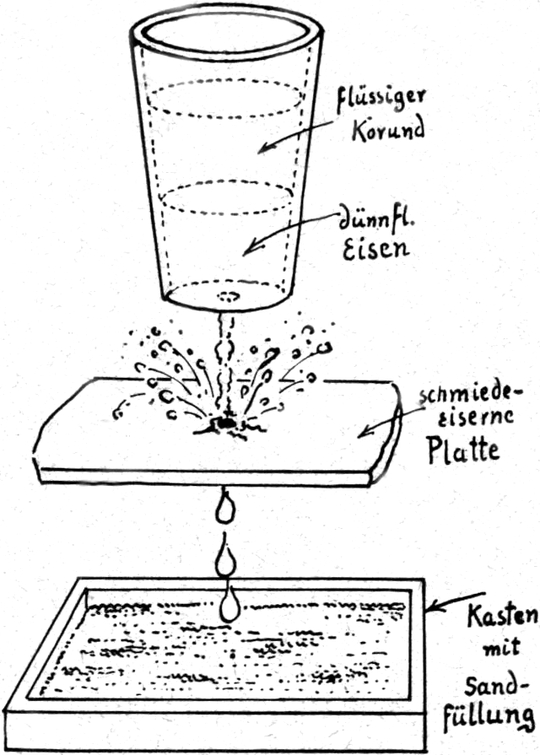 flüssiger
Korund
dünnfl.
Eisen
schmiede-
eiserne
Platte
Kasten
mit
Sand-
füllung